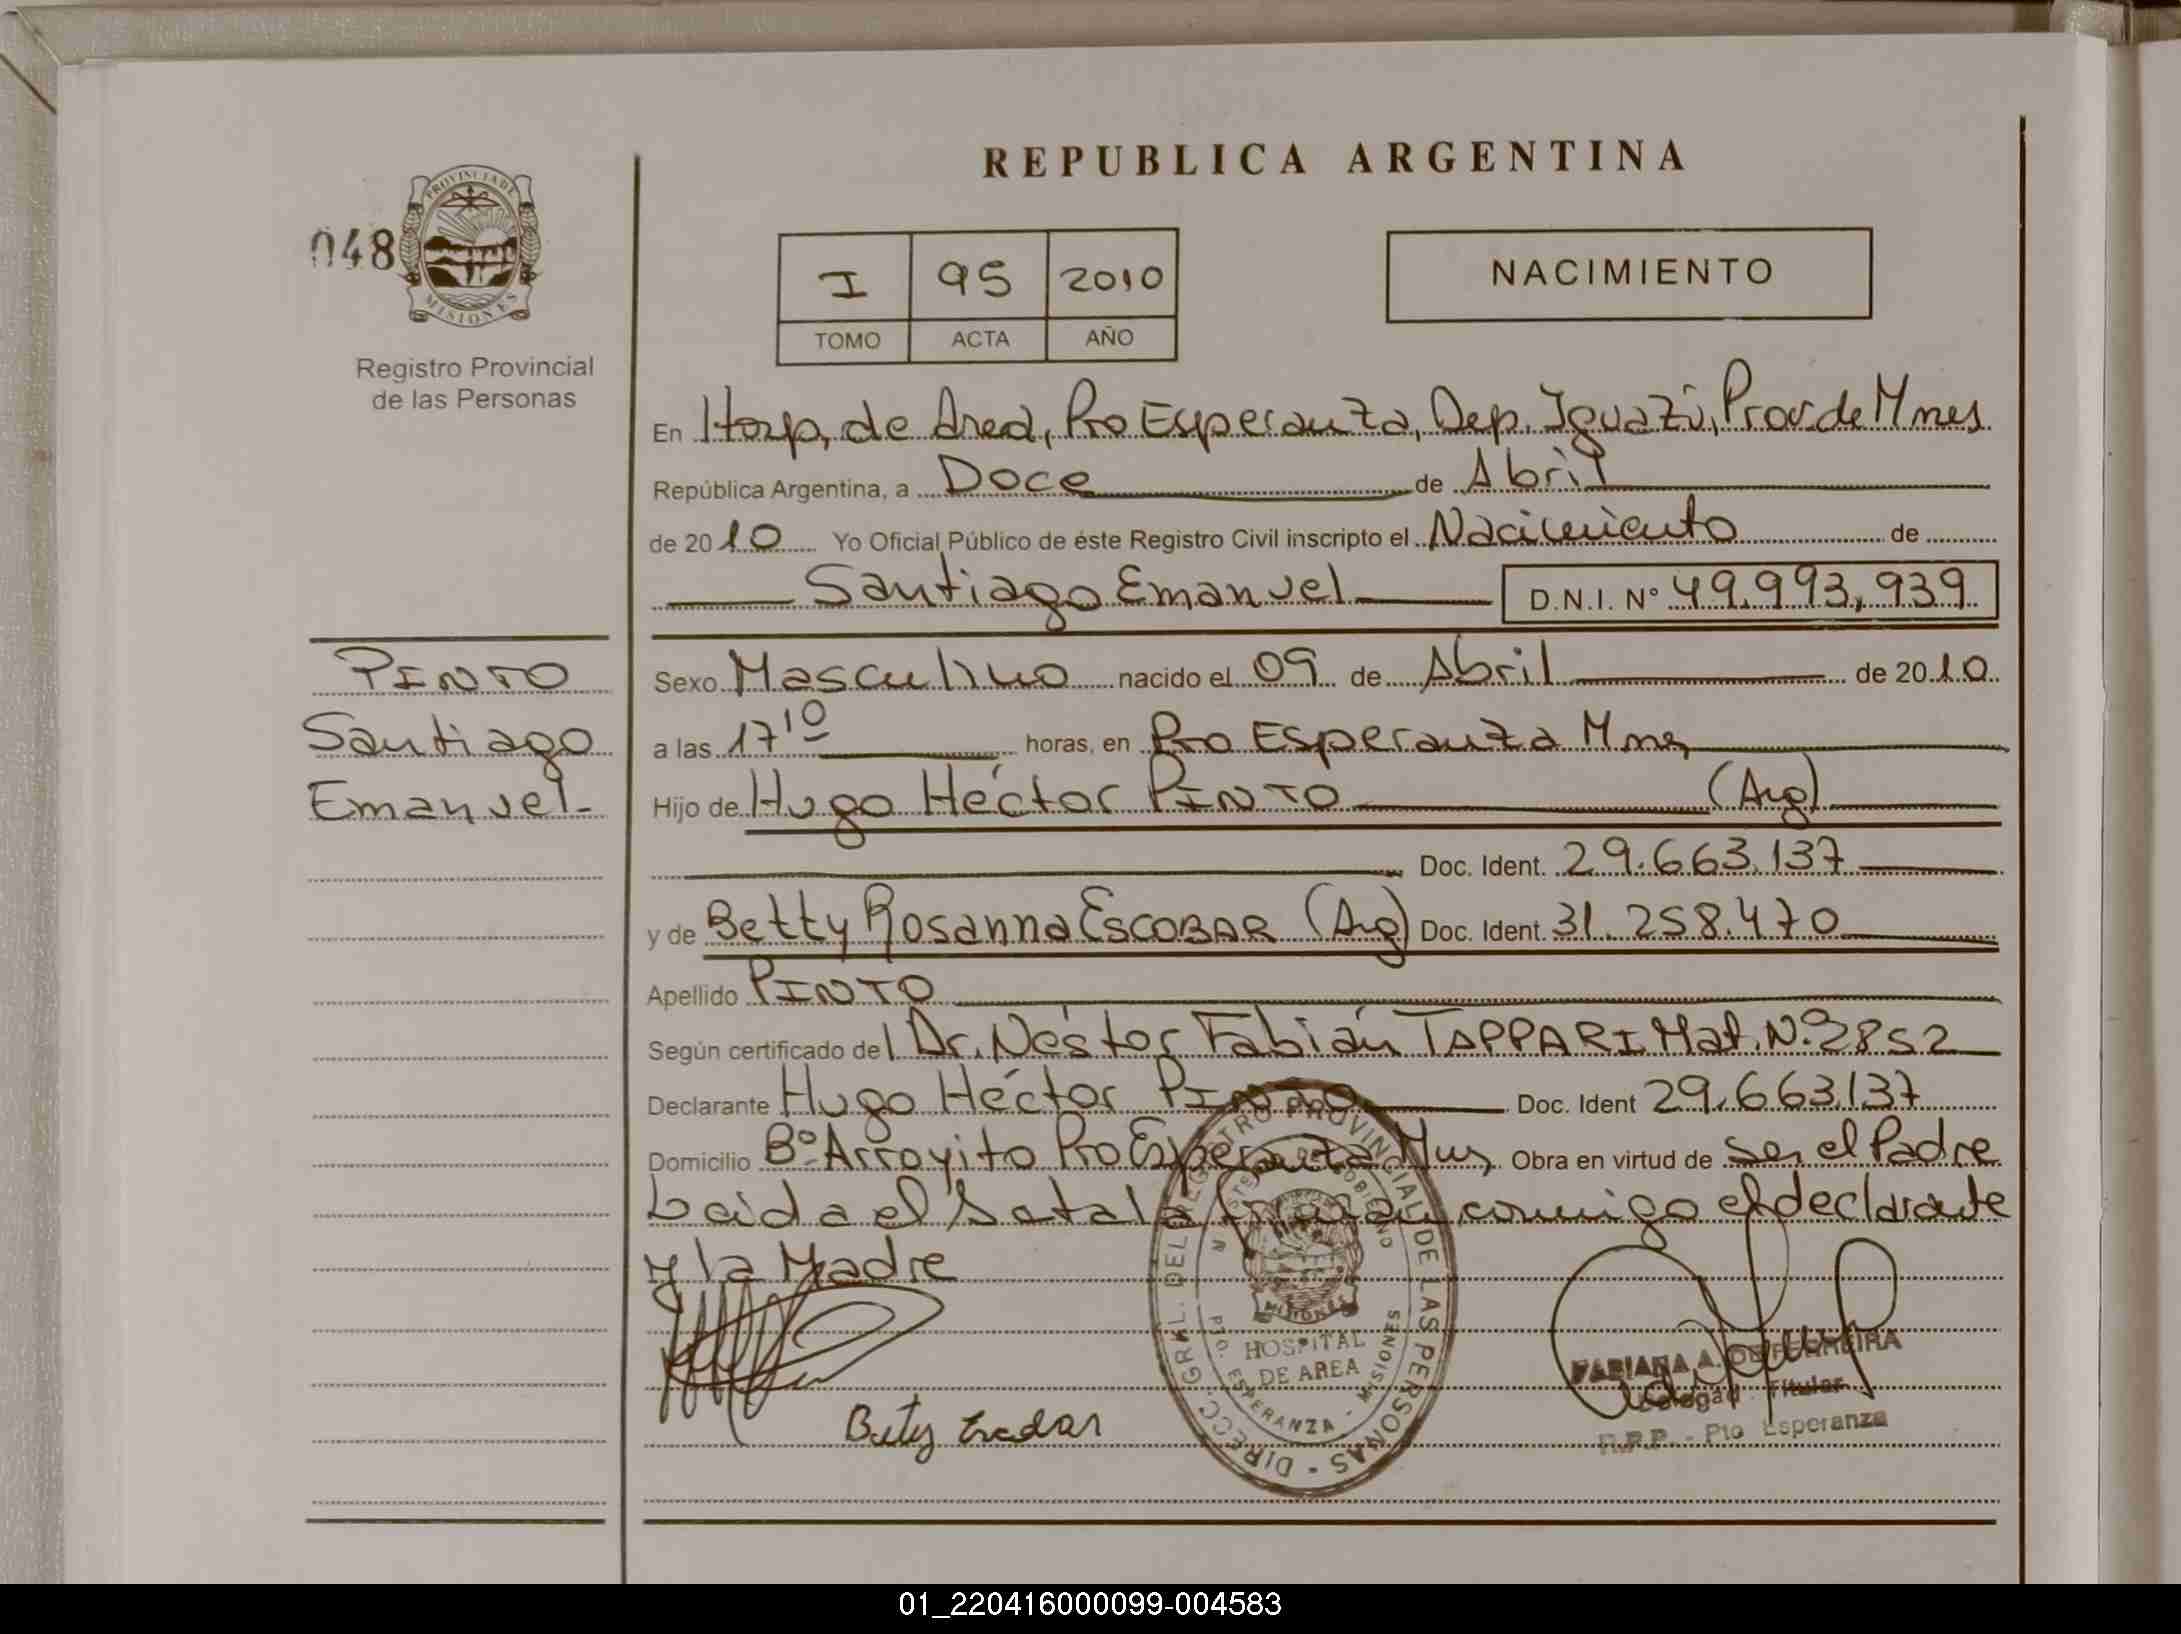 REPUBLICA ARGENTINA
048
PROVINCIA DE
MISIONES
Registro Provincial
de las Personas
I 95 2010
TOMO ACTA AÑO
NACIMIENTO
En Hosp, de Area, Pto Esperanza, Dep. Iguazú, Prov. de Mnes
República Argentina, a Doce de Abril
de 2010 Yo Oficial Público de éste Registro Civil inscripto el Nacimiento de
Santiago Emanuel D.N.I. Nº 49.993,939
PINTO
Santiago
Emanuel-
Sexo Masculino nacido el 09 de Abril de 2010
a las 17 10 horas, en Pto Esperanza Mnes
Hijo de Hugo Héctor PINTO (Arg)
Doc. Ident. 29.663.137
y de Betty Rosanna ESCOBAR (Arg) Doc. Ident. 31.258.470
Apellido PINTO
Según certificado del Dr. Néstor Fabián TAPPARI Mat. Nº 2852
Declarante Hugo Héctor PINTO Doc. Ident 29.663.137
Domicilio Bº Arroyito Pto Esperanza Mns, Obra en virtud de ser el Padre
Leida el Acta la firman conmigo el declarante
y la Madre
DIRECC. GRAL. DEL REGISTRO PROVINCIAL DE LAS PERSONAS
MISIONES
HOSPITAL
DE AREA
PTO. ESPERANZA - MISIONES
FABIANA A.
Titular
R.P.P. - Pto Esperanza
01_220416000099-004583